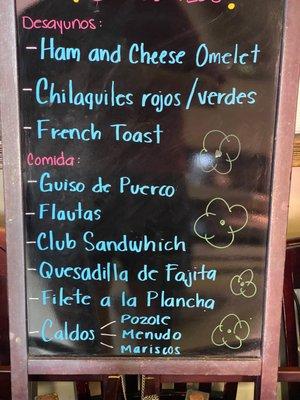 Desayunos:
- Ham and Cheese Omelet
- Chilaquiles rojos/verdes
- French Toast
Comida:
- Guiso de Puerco
- Flautas
- Club Sandwhich
- Quesadilla de Fajita
- Filete a la Plancha
- Caldos - Pozole
- Menudo
- Mariscos